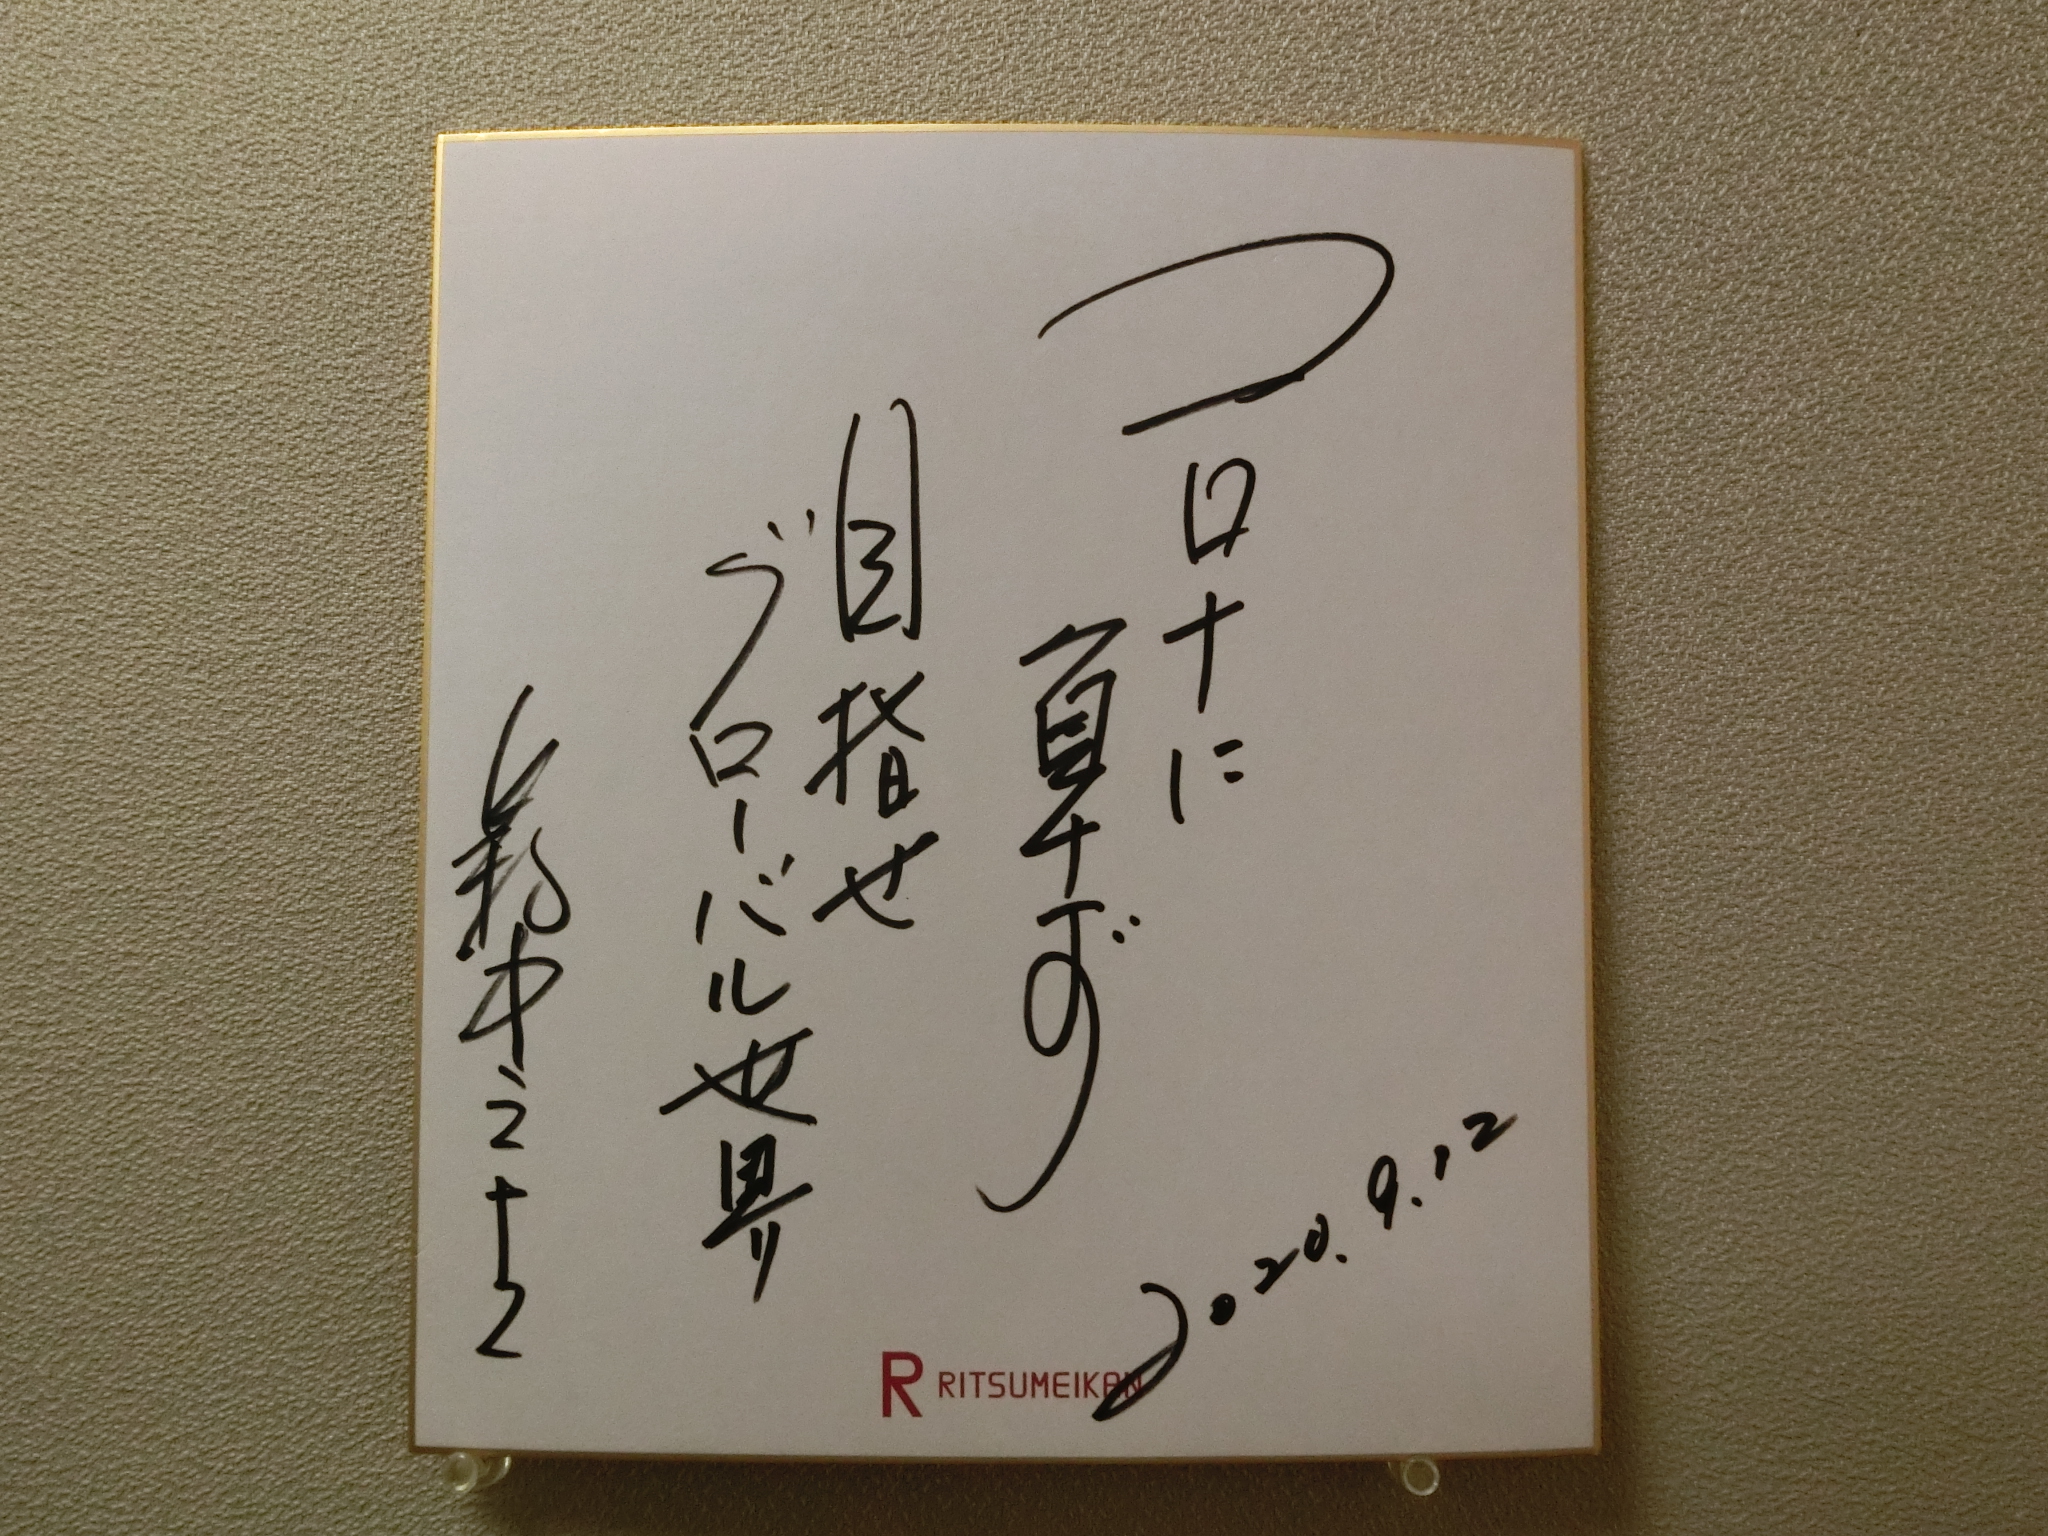 コロナに
負けず
目指せ
グローバル世界
藪中三十二
2020.9.12
R RITSUMEIKAN